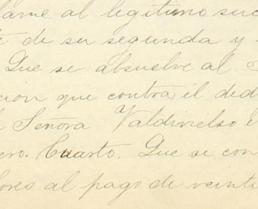 llame al legitimo suc
de ser segunda y
Que se absuelve al
cion que contra él ded
Señora Valdivielso
ero. Cuarto. Que se con
ores al pago de veinti